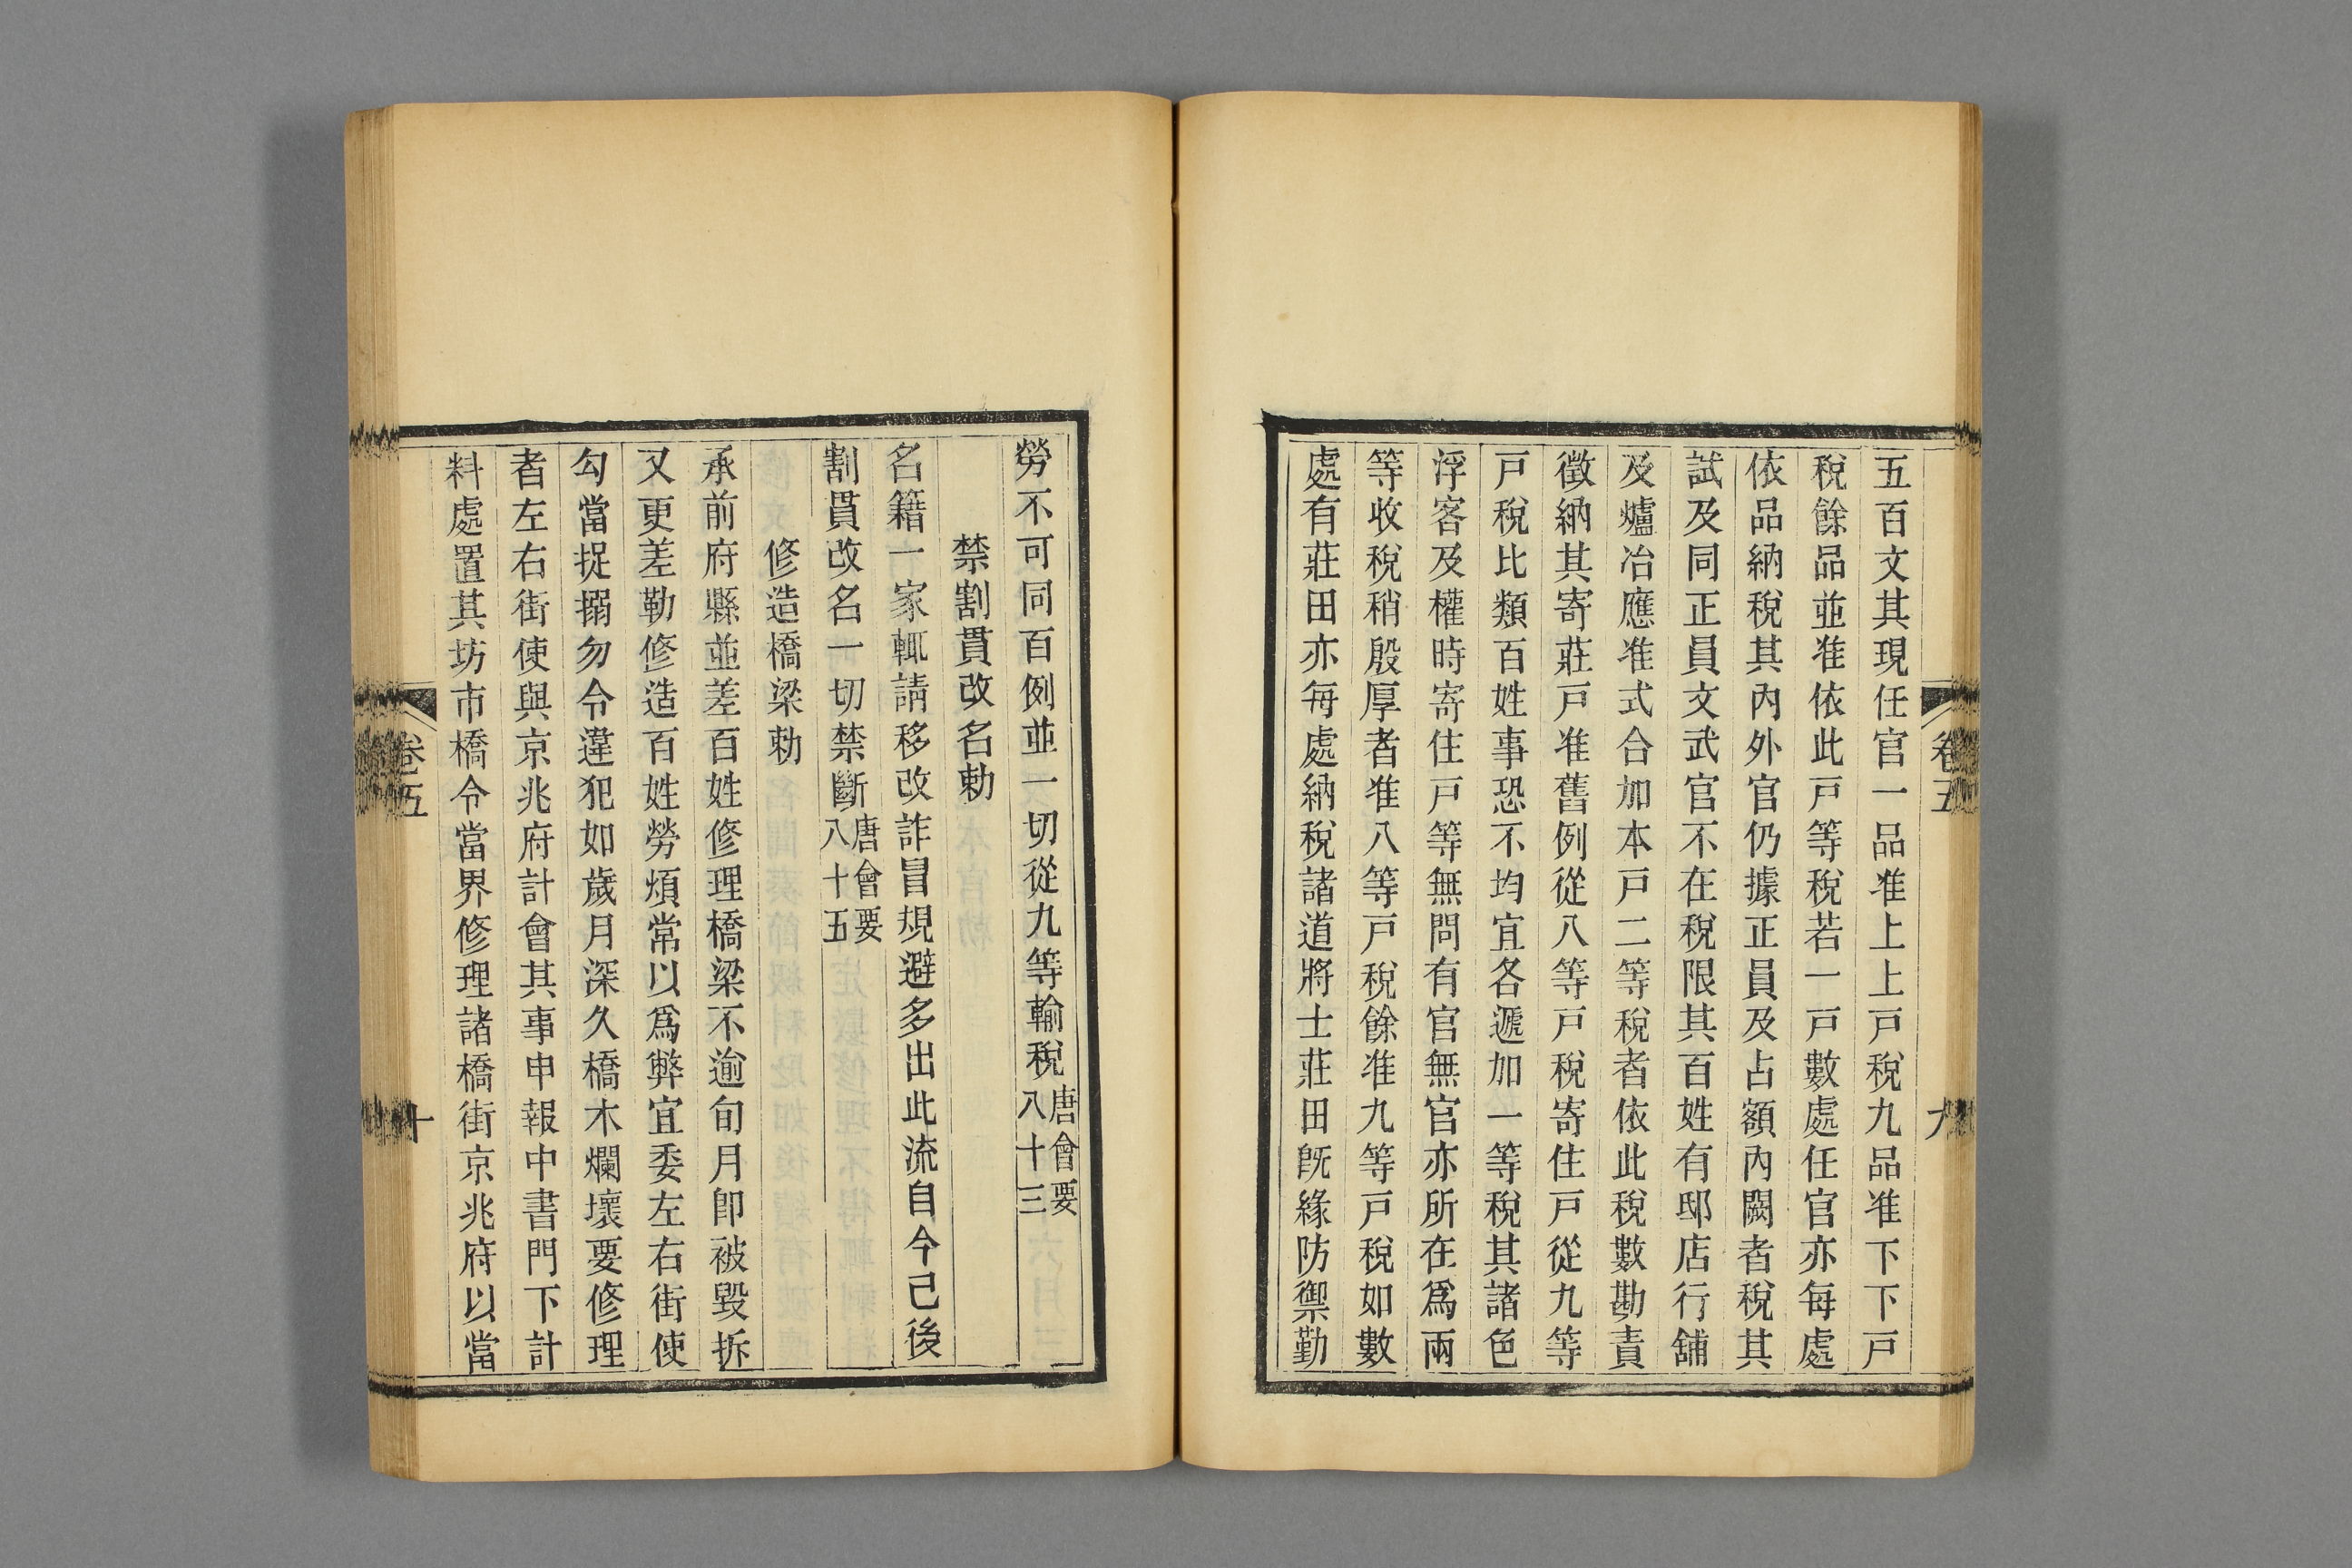 五百文其現任官一品准上上戸稅九品准下下戸
稅餘品並准依此戸等稅若一戸數處任官亦每處
依品納稅其內外官仍據正員及占額內闕者稅其
試及同正員文武官不在稅限其百姓有邸店行鋪
及爐冶應准式合加本戸二等稅者依此稅數勘責
徵納其寄莊戸准舊例從八等戸稅寄住戸從九等
戸稅比類百姓事恐不均宜各遞加一等稅其諸色
浮客及權時寄住戸等無問有官無官亦所在爲兩
等收稅稍殷厚者准八等戸稅餘准九等戸稅如數
處有莊田亦每處納稅諸道將士莊田旣緣防禦勤
卷五
九
勞不可同百例並一切從九等輸稅唐會要八十三
禁割貫改名勅
名籍一家輒請移改詐冒規避多出此流自今已後
割貫改名一切禁斷唐會要八十五
修造橋梁勅
承前府縣並差百姓修理橋梁不逾旬月卽被毀拆
又更差勒修造百姓勞煩常以爲弊宜委左右街使
勾當捉搦勿令違犯如歲月深久橋木爛壞要修理
者左右街使與京兆府計會其事申報中書門下計
料處置其坊市橋令當界修理諸橋街京兆府以當
卷五
十